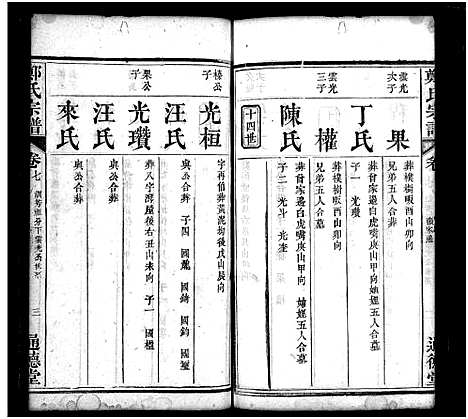 鄭氏宗譜
雲光次子
果
葬樸樹畈酉山卯向
兄弟五人合墓
丁氏
葬曾家邊白虎嘴庚山甲向妯娌五人合墓
子一 光瓚
雲光三子
權
葬樸樹畈酉山卯向
兄弟五人合墓
陳氏
葬曾家邊白虎嘴庚山甲向 妯娌五人合墓
子二 光斗 光奎
十四世
通德堂
榛公子
光桓
字再伯葬黃泥坳後戊山辰向
汪氏
與公合葬 子四 國鳳 國鈞 國錡
果公子
光瓚
葬八字灣屋後右丑山未向 子一 國楹
汪氏
與公合葬
來氏
與公合葬
鄭氏宗譜
卷七
三
通德堂